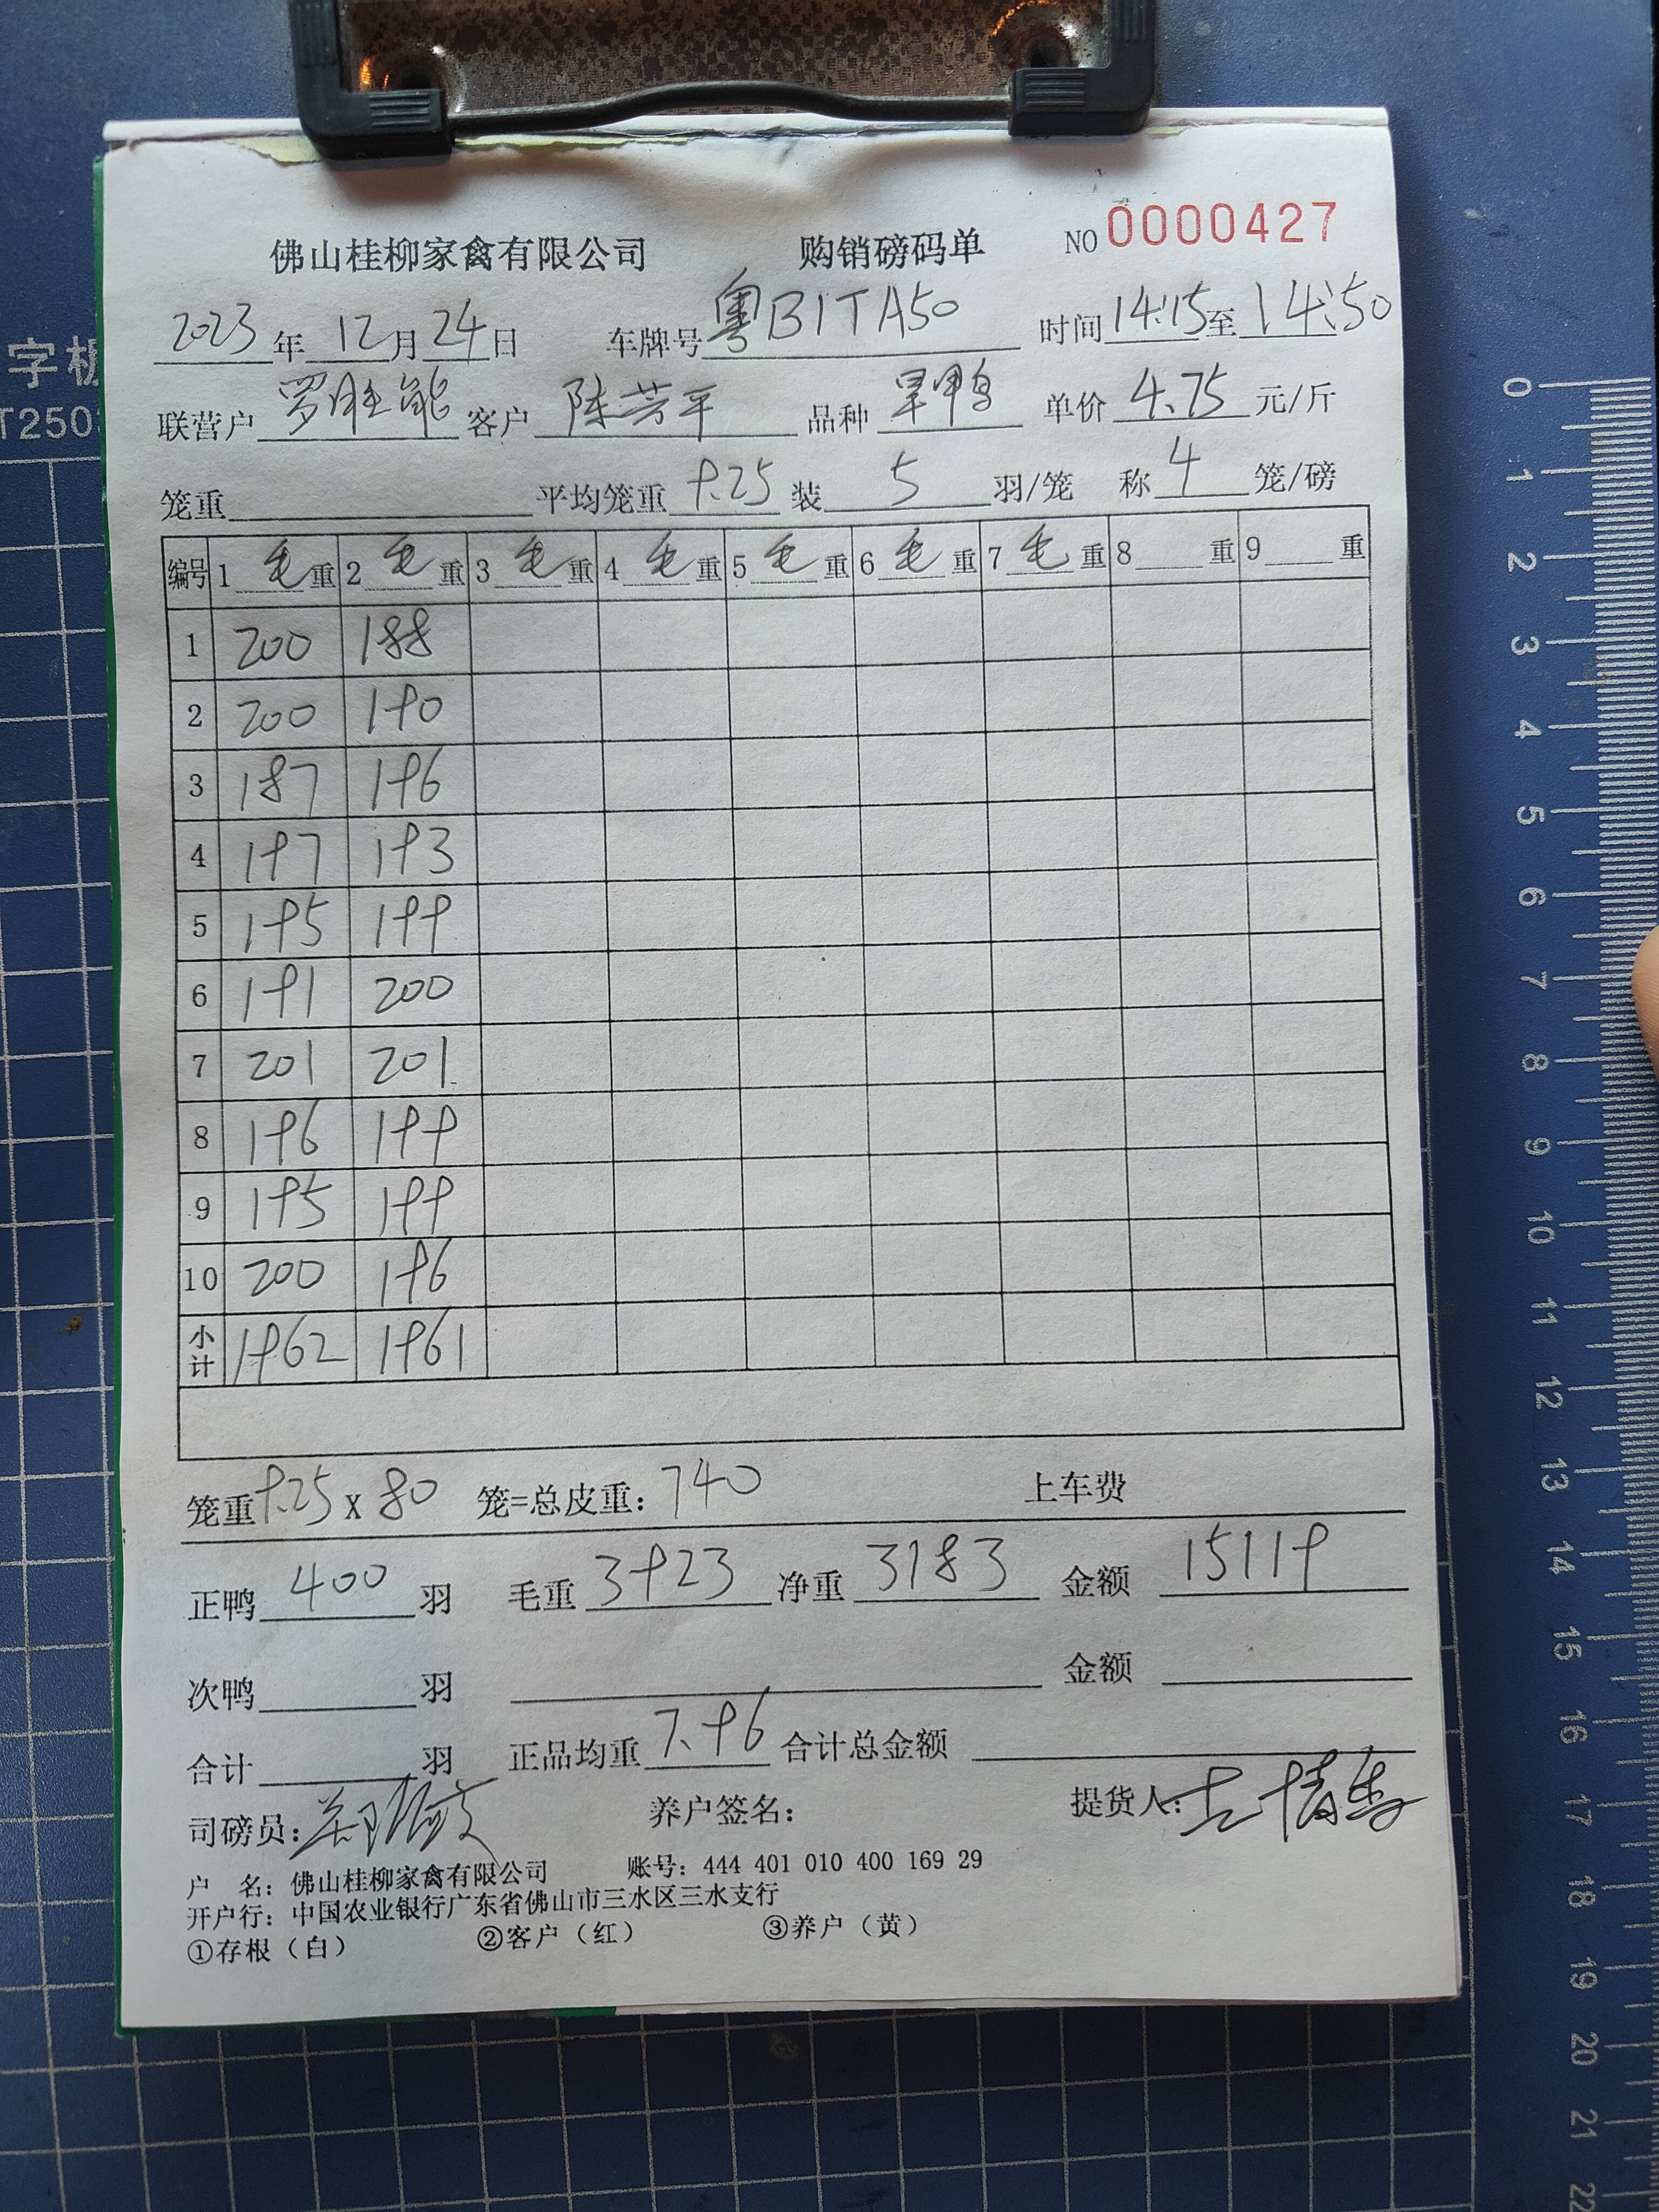 佛山桂柳家禽有限公司 购销磅码单 NO 0000427
2023年12月24日 车牌号 粤B1TA50 时间 14:15至14:50
联营户 罗胜能 客户 陈芳平 品种 旱鸭 单价 4.75 元/斤
笼重 平均笼重 9.25 装 5 羽/笼 称 4 笼/磅
编号 1 毛重 2 毛重 3 毛重 4 毛重 5 毛重 6 毛重 7 毛重 8 重 9 重
1 200 188
2 200 190
3 187 196
4 197 193
5 195 199
6 191 200
7 201 201
8 196 199
9 195 199
10 200 196
小计 1962 1961
笼重 9.25 X 80 笼=总皮重: 740 上车费
正鸭 400 羽 毛重 3923 净重 3183 金额 15119
次鸭 羽 金额
合计 羽 正品均重 7.96 合计总金额
司磅员: 养户签名: 提货人:
户 名: 佛山桂柳家禽有限公司 账号: 444 401 010 400 169 29
开户行: 中国农业银行广东省佛山市三水区三水支行
①存根（白） ②客户（红） ③养户（黄）
字板
T250
0
1
2
3
4
5
6
7
8
9
10
11
12
13
14
15
16
17
18
19
20
21